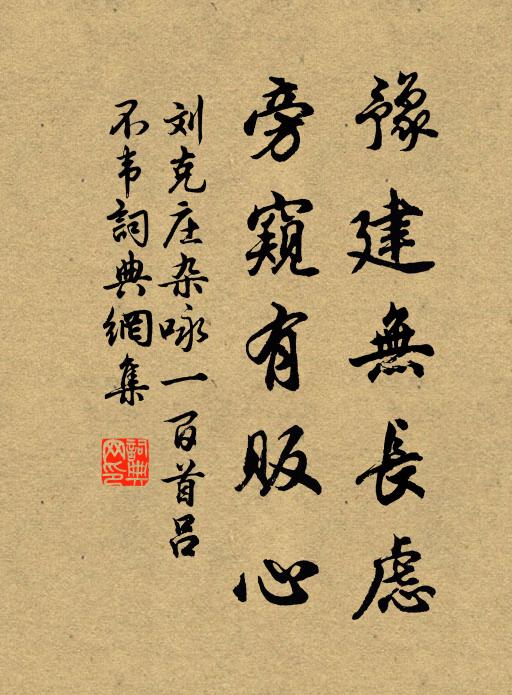 豫建無長慮
旁窺有販心
刘克庄杂咏一百首吕
不韦詞典網集
詞典网印